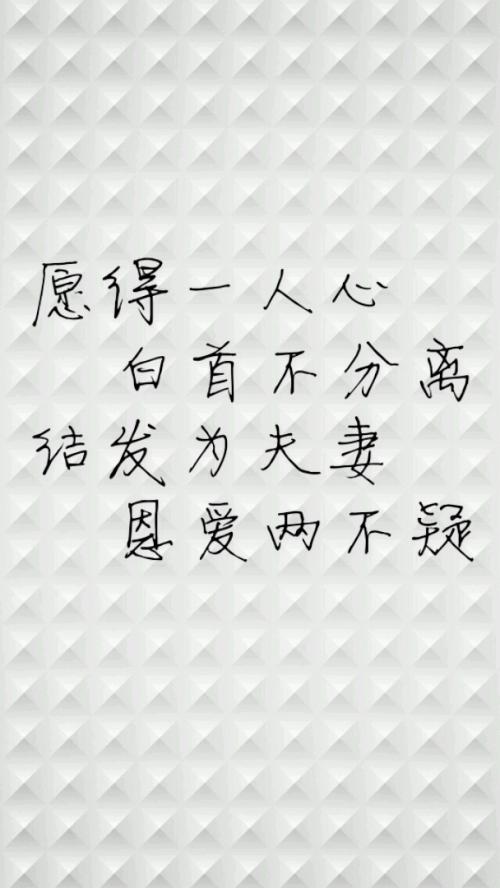 愿得一人心
白首不分离
结发为夫妻
恩爱两不疑